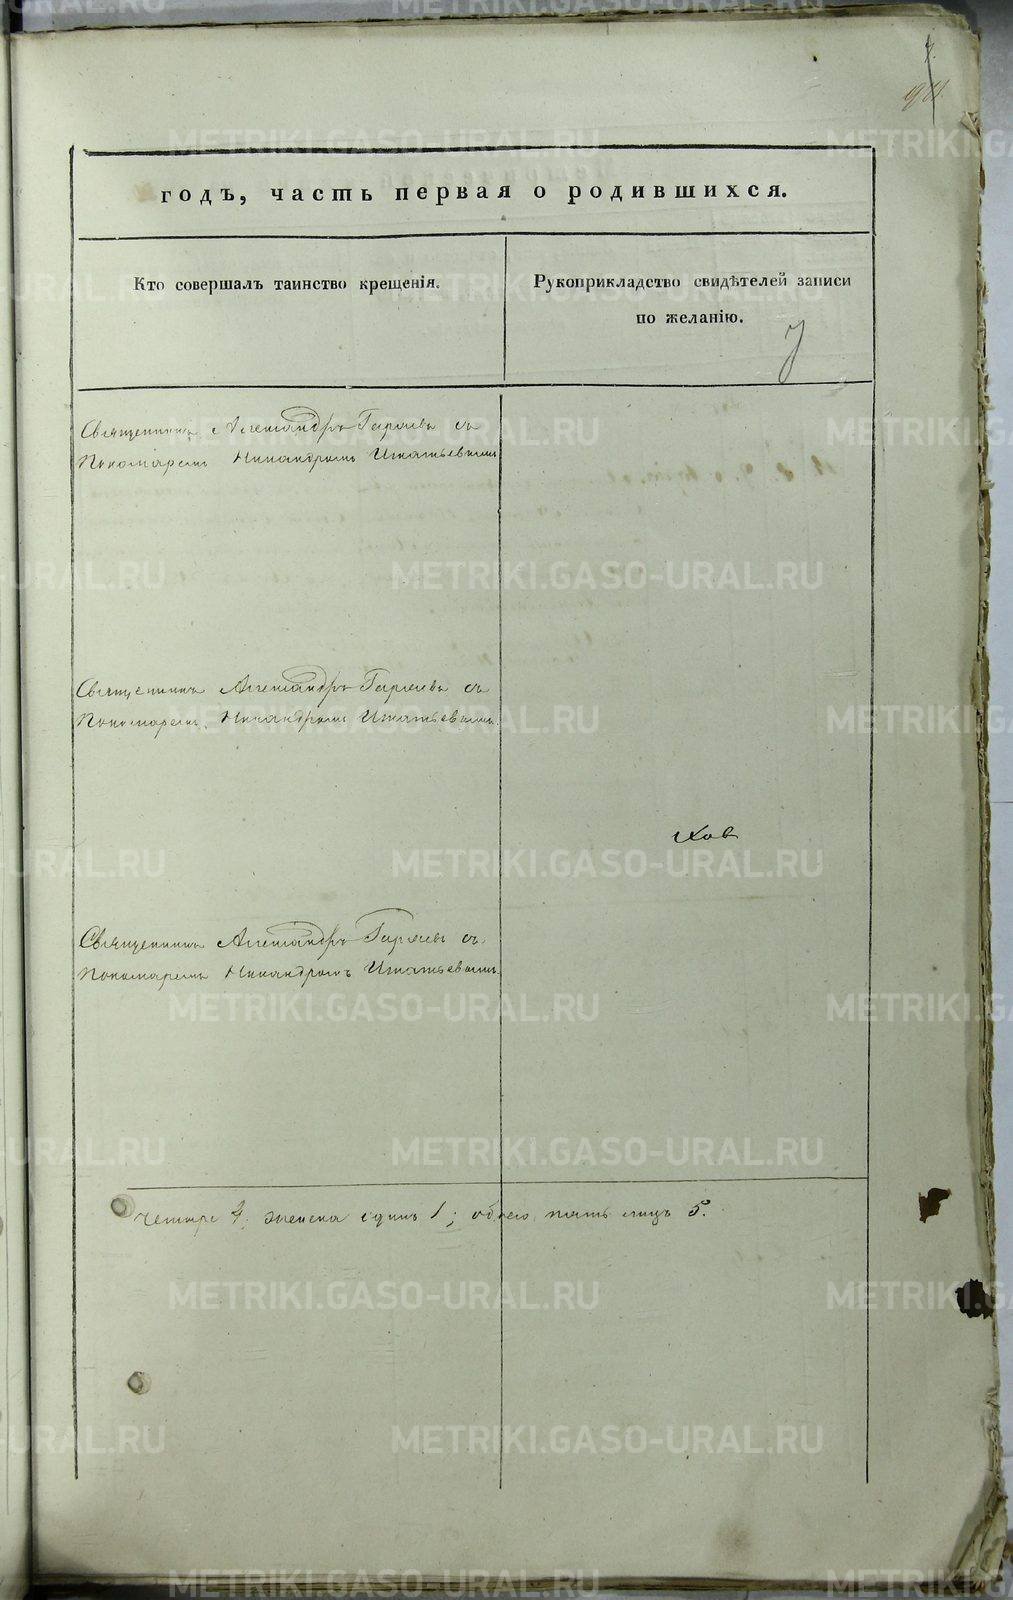 годъ, часть первая о родившихся.
Кто совершалъ таинство крещенія.
Рукоприкладство свидѣтелей записи
по желанію.
7
Священникъ Александръ Гаряевъ съ
Пономаремъ Никандромъ Игнатьевымъ
Священникъ Александръ Гаряевъ съ
Пономаремъ Никандромъ Игнатьевымъ.
ковъ
Священникъ Александръ Гаряевъ съ
Пономаремъ Никандромъ Игнатьевымъ.
четыре 4; женска одинъ 1; обоего пять лицъ 5.
METRIKI.GASO-URAL.RU